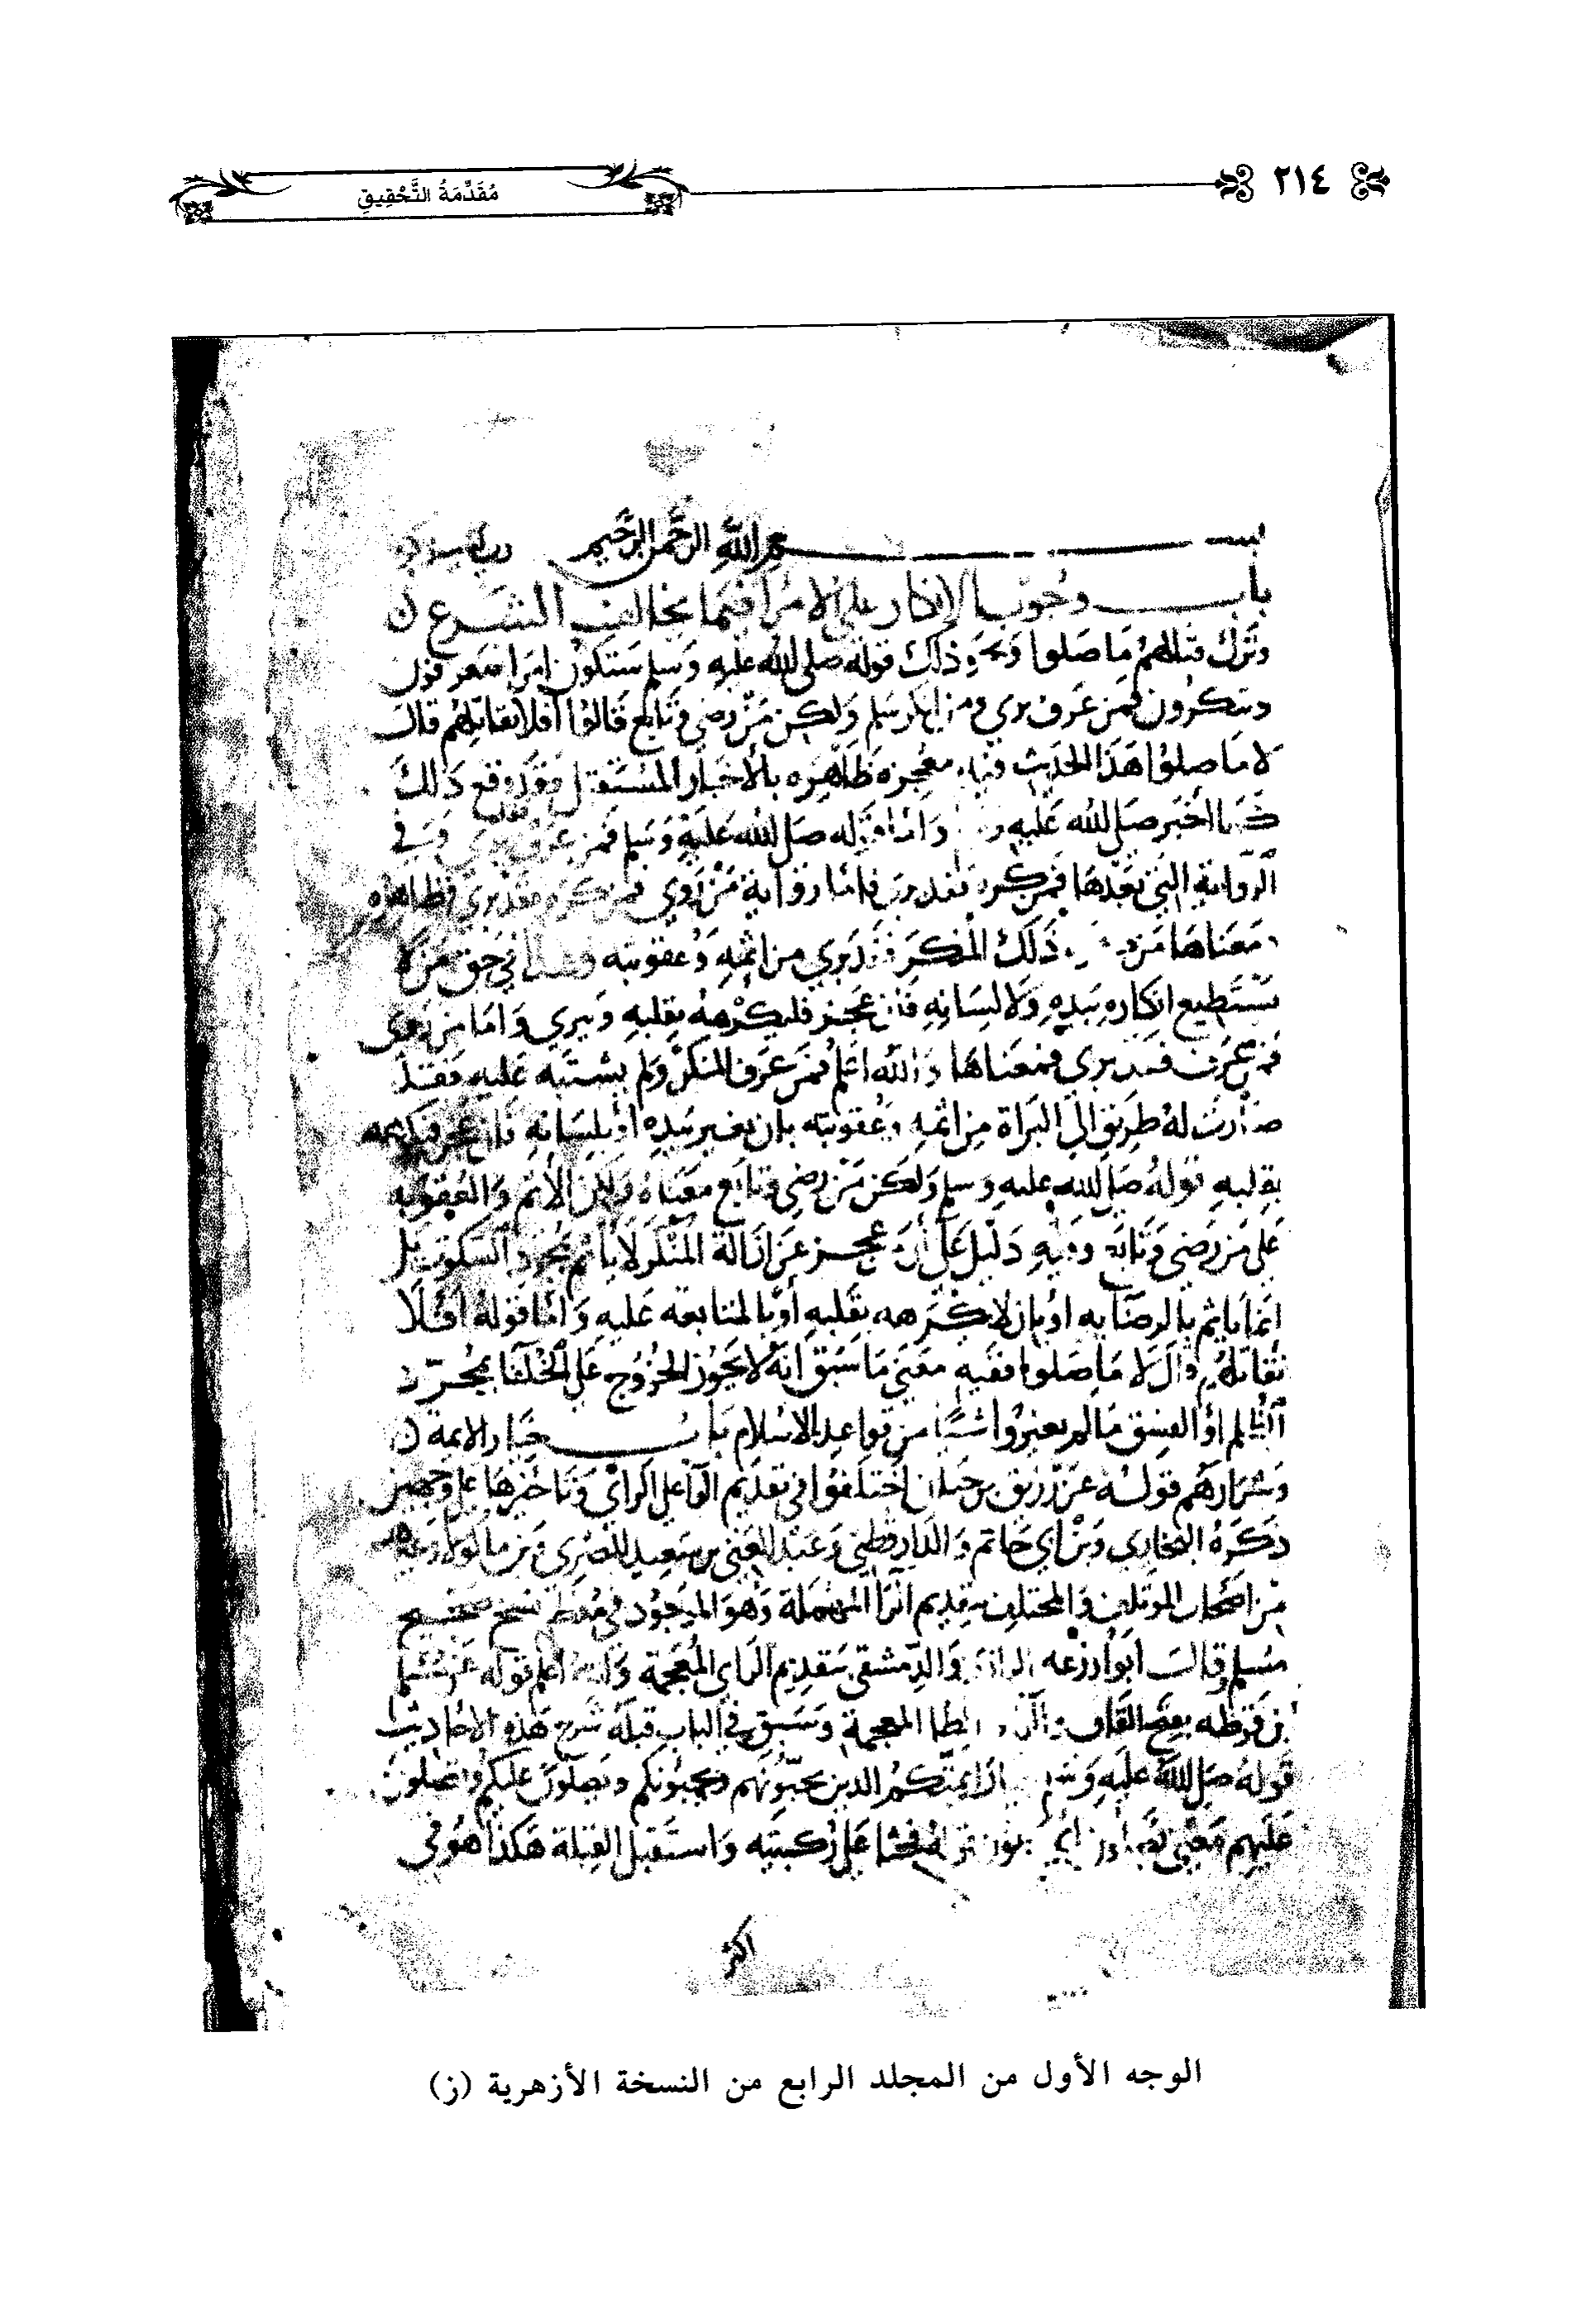 ٢١٤
مُقَدِّمَةُ التَّحْقِيقِ
بسم الله الرحمن الرحيم
باب وجوب الإنكار على الامرا فيما يخالف الشرع
وترك قتالهم ما صلوا ونحو ذلك قوله صلى الله عليه وسلم ستكون امرا فتعرفون
وتنكرون فمن عرف بري ومن انكر سلم ولكن من رضي وتابع قالوا أفلا نقاتلهم قال
لا ما صلوا هذا الحديث فيه معجزه ظاهره بالأخبار المستقبل وقد وقع ذلك
كما اخبر صلى الله عليه واما قوله صلى الله عليه وسلم فمن عرف بري وفي
الرواية التي بعدها فمن كره فقد بري فاما رواية من روي فمن كره فقد بري فظاهره
معناها من ذلك المنكر فقد بري من اثمه وعقوبته وهذا في حق من لا
يستطيع انكاره بيده ولا لسانه فان عجز فليكرهه بقلبه ويبري واما من روى
فمن عرف فقد بري فمعناها والله اعلم فمن عرف المنكر ولم يشتبه عليه فقد
صارت له طريق الى البراة من اثمه وعقوبته بان يغير بيده او بلسانه فان عجز فليكرهه
بقلبه قوله صلى الله عليه وسلم ولكن من رضي وتابع معناه ولكن الأثم والعقوبه
على من رضي وتابع وفيه دليل على أن عجز عن ازالة المنكر لا يأثم بمجرد السكوت بل
انما ياثم بالرضا به او بان لا يكرهه بقلبه أو بالمتابعه عليه واما قوله افلا
نقاتلهم قال لا ما صلوا ففيه معنى ما سبق انه لا يجوز الخروج على الخلفا بمجرد
الظلم أو الفسق ما لم يغيروا شيا من قواعد الاسلام باب خيار الايمة
وشرارهم قوله عن رزيق بن حيان اختلفوا في تقديم الرا على الزاي وتاخيرها على وجهين
ذكره البخاري وبن ابي حاتم والدارقطني وعبد الغني بن سعيد المصري وبن ماكولا وغيرهم
من اصحاب الموتلف والمختلف بتقديم الرا المهملة وهو الموجود في معظم نسخ صحيح
مسلم وقال ابو زرعه الرازي والدمشقي بتقديم الزاي المعجمة والله اعلم قوله عن مسلم
بن قرظه بفتح القاف والرا والظا المعجمة وسبق في الباب قبله شرح هذه الاحاديث
قوله صلى الله عليه وسلم خيار ايمتكم الذين تحبونهم ويحبونكم ويصلون عليكم وتصلون
عليهم معنى فجثا على ركبتيه واستقبل القبلة هكذا هو في
اكثر
الوجه الأول من المجلد الرابع من النسخة الأزهرية (ز)